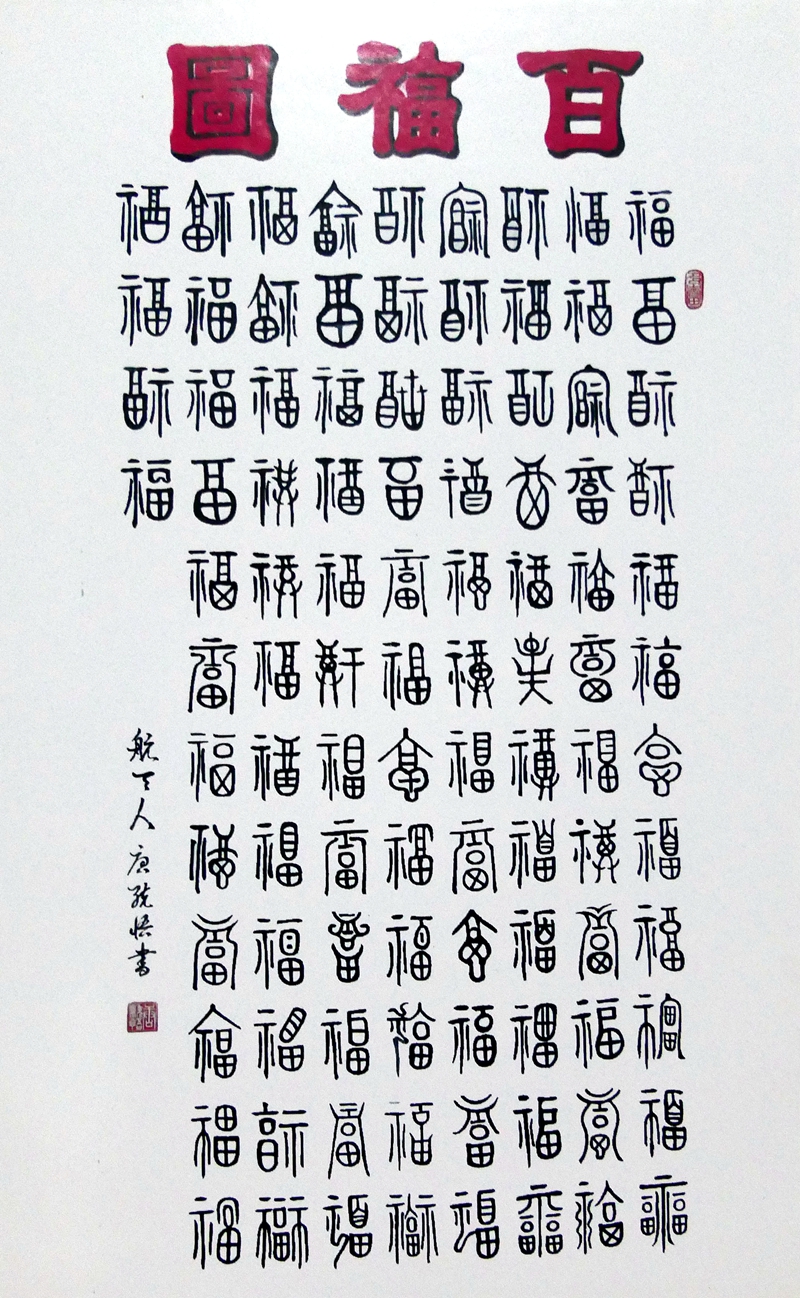 百福圖
福福福福福福福福福福福福
福福福福福福福福福福福福
福福福福福福福福福福福福
福福福福福福福福福福福福
福福福福福福福福福福福福
福福福福福福福福福福福福
福福福福福福福福福福福福
福福福福福福福福福福福福
福福福福
航天人唐悟書